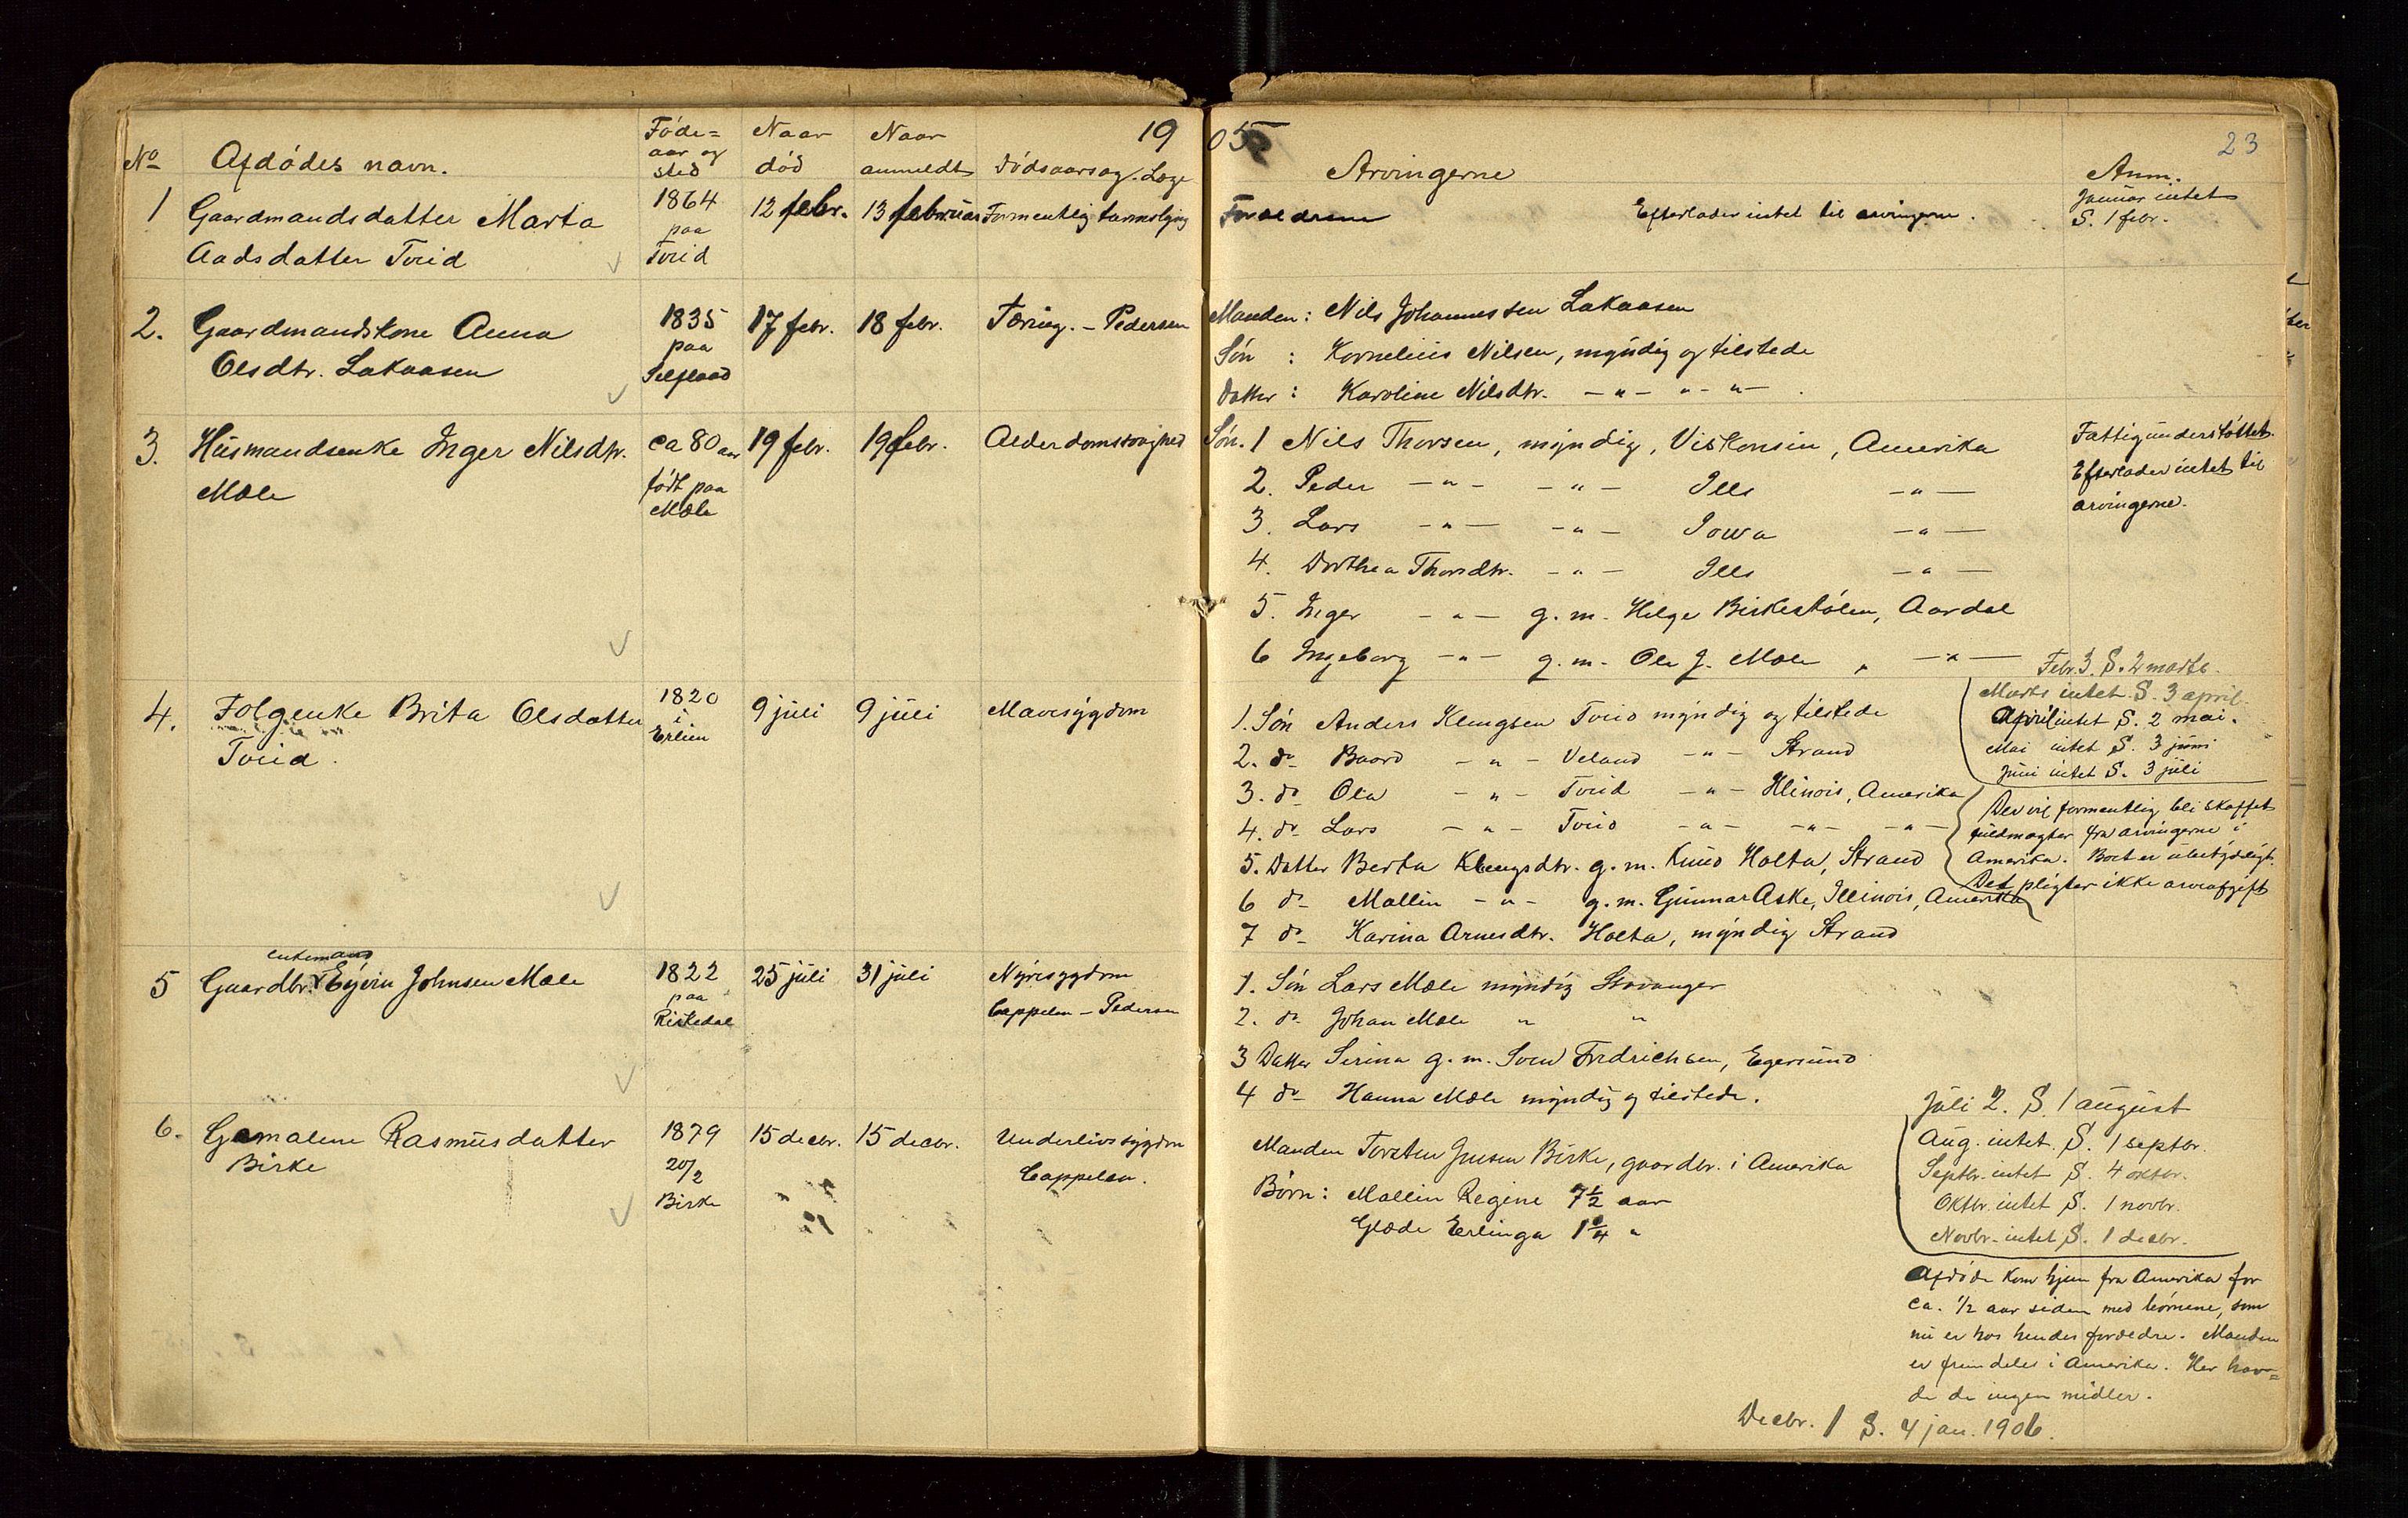 1905
23
No Afdødes navn. Føde= aar og sted Naar død Naar anmeldt Dødsaarsag. Læge Arvingerne Anm.
1 Gaardmandsdatter Marta
Aadsdatter Tveid
1864
paa
Tveid
12 febr. 13 februar Formentlig tarmslyng
Forældrene Efterlader intet til arvingerne.
Januar intet
S. 1 febr.
2. Gaardmandskone Anna
Olsdtr. Lakaasen
1835
paa
Selflaad
17 febr. 18 febr. Tæring. - Pedersen
Manden: Nils Johannessen Lakaasen
Søn : Kornelius Nilsen, myndig og tilstede
Datter : Karoline Nilsdtr. - " - " - " -
3. Husmandsenke Inger Nilsdtr.
Mæle
ca 80 aar
født paa
Mæle
19 febr. 19 febr. Alderdomssvaghed
Søn. 1 Nils Thorsen, myndig, Viskonsin, Amerika
2. Peder - " - - " - Ills - " -
3. Lars - " - - " - Iowa - " -
4. Dorthea Thorsdtr. - " - Ills - " -
5. Inger - " - g. m. Helge Birkestølen, Aardal
6 Ingeborg - " - g. m. Ole J. Mæle, - " -
Fattigunderstøttet.
Efterlader intet til
arvingerne.
Febr. 3. S. 2 marts.
Marts intet S. 3 april
April intet S. 2 mai.
Mai intet S. 3 juni
Juni intet S. 3 juli
4. Folgenke Brita Olsdatter
Tveid.
1820
i
Erlien
9 juli 9 juli Mavesygdom
1. Søn Anders Klengsen Tveid myndig og tilstede
2. do Baard - " - Veland - " - Strand
3. do Ola - " - Tveid - " - Illinois, Amerika
4. do Lars - " - Tveid - " - - " - - " -
5. Datter Berta Klengsdtr. g. m. Knud Holta, Strand
6 do Mallin - " - g. m. Gunnar Aske, Illinois, Amerika
7 do Karina Arnesdtr. Holta, myndig Strand
Der vil formentlig bli skaffet
fuldmagter fra arvingerne i
Amerika. Boet er ubetydeligt.
Det pligter ikke arveafgift
5 Gaardbr. enkemand Eyvin Johnsen Mæle
1822
paa
Riskedal
25 juli 31 juli Nyresygdom
Cappelen - Pedersen
1. Søn Lars Mæle myndig Stavanger
2. do Johan Mæle " "
3 Datter Serina g. m. Sven Fredrichsen, Egersund
4 do Hanna Mæle myndig og tilstede.
Juli 2. S. 1 august
Aug. intet. S. 1 septbr.
Septbr. intet S. 4 oktbr.
Oktbr. intet S. 1 novbr.
Novbr. intet S. 1 decbr.
6. Gemalene Rasmusdatter
Birke
1879
20/2
Birke
15 decbr. 15 decbr. Underlivssygdom
Cappelen.
Manden Torsten Jensen Birke, gaardbr. i Amerika
Børn: Mallin Regine 7 1/2 aar
Glæde Erlinga 1 1/4 "
Afdøde kom hjem fra Amerika for
ca. 1/2 aar siden med børnene, som
nu er hos hendes forældre. Manden
er fremdeles i Amerika. Her hav=
de de ingen midler.
Decbr. 1 S. 4 jan. 1906.